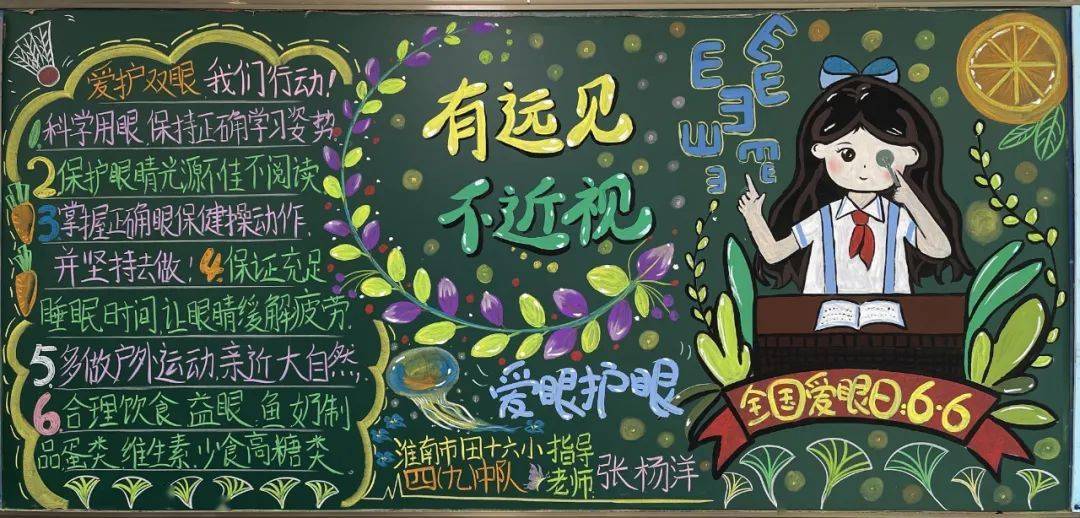 爱护双眼 我们行动!
1.科学用眼 保持正确学习姿势
2保护眼睛光源不佳不阅读
3掌握正确眼保健操动作
并坚持去做!4保证充足
睡眠时间,让眼睛缓解疲劳
5多做户外运动,亲近大自然,
6合理饮食 益眼 鱼 奶制
品蛋类 维生素 少食高糖类
有远见
不近视
爱眼护眼
淮南市田十六小
四(九)中队
指导
老师
张杨洋
E E E
E E m e
E E m
w
3
全国爱眼日:6·6